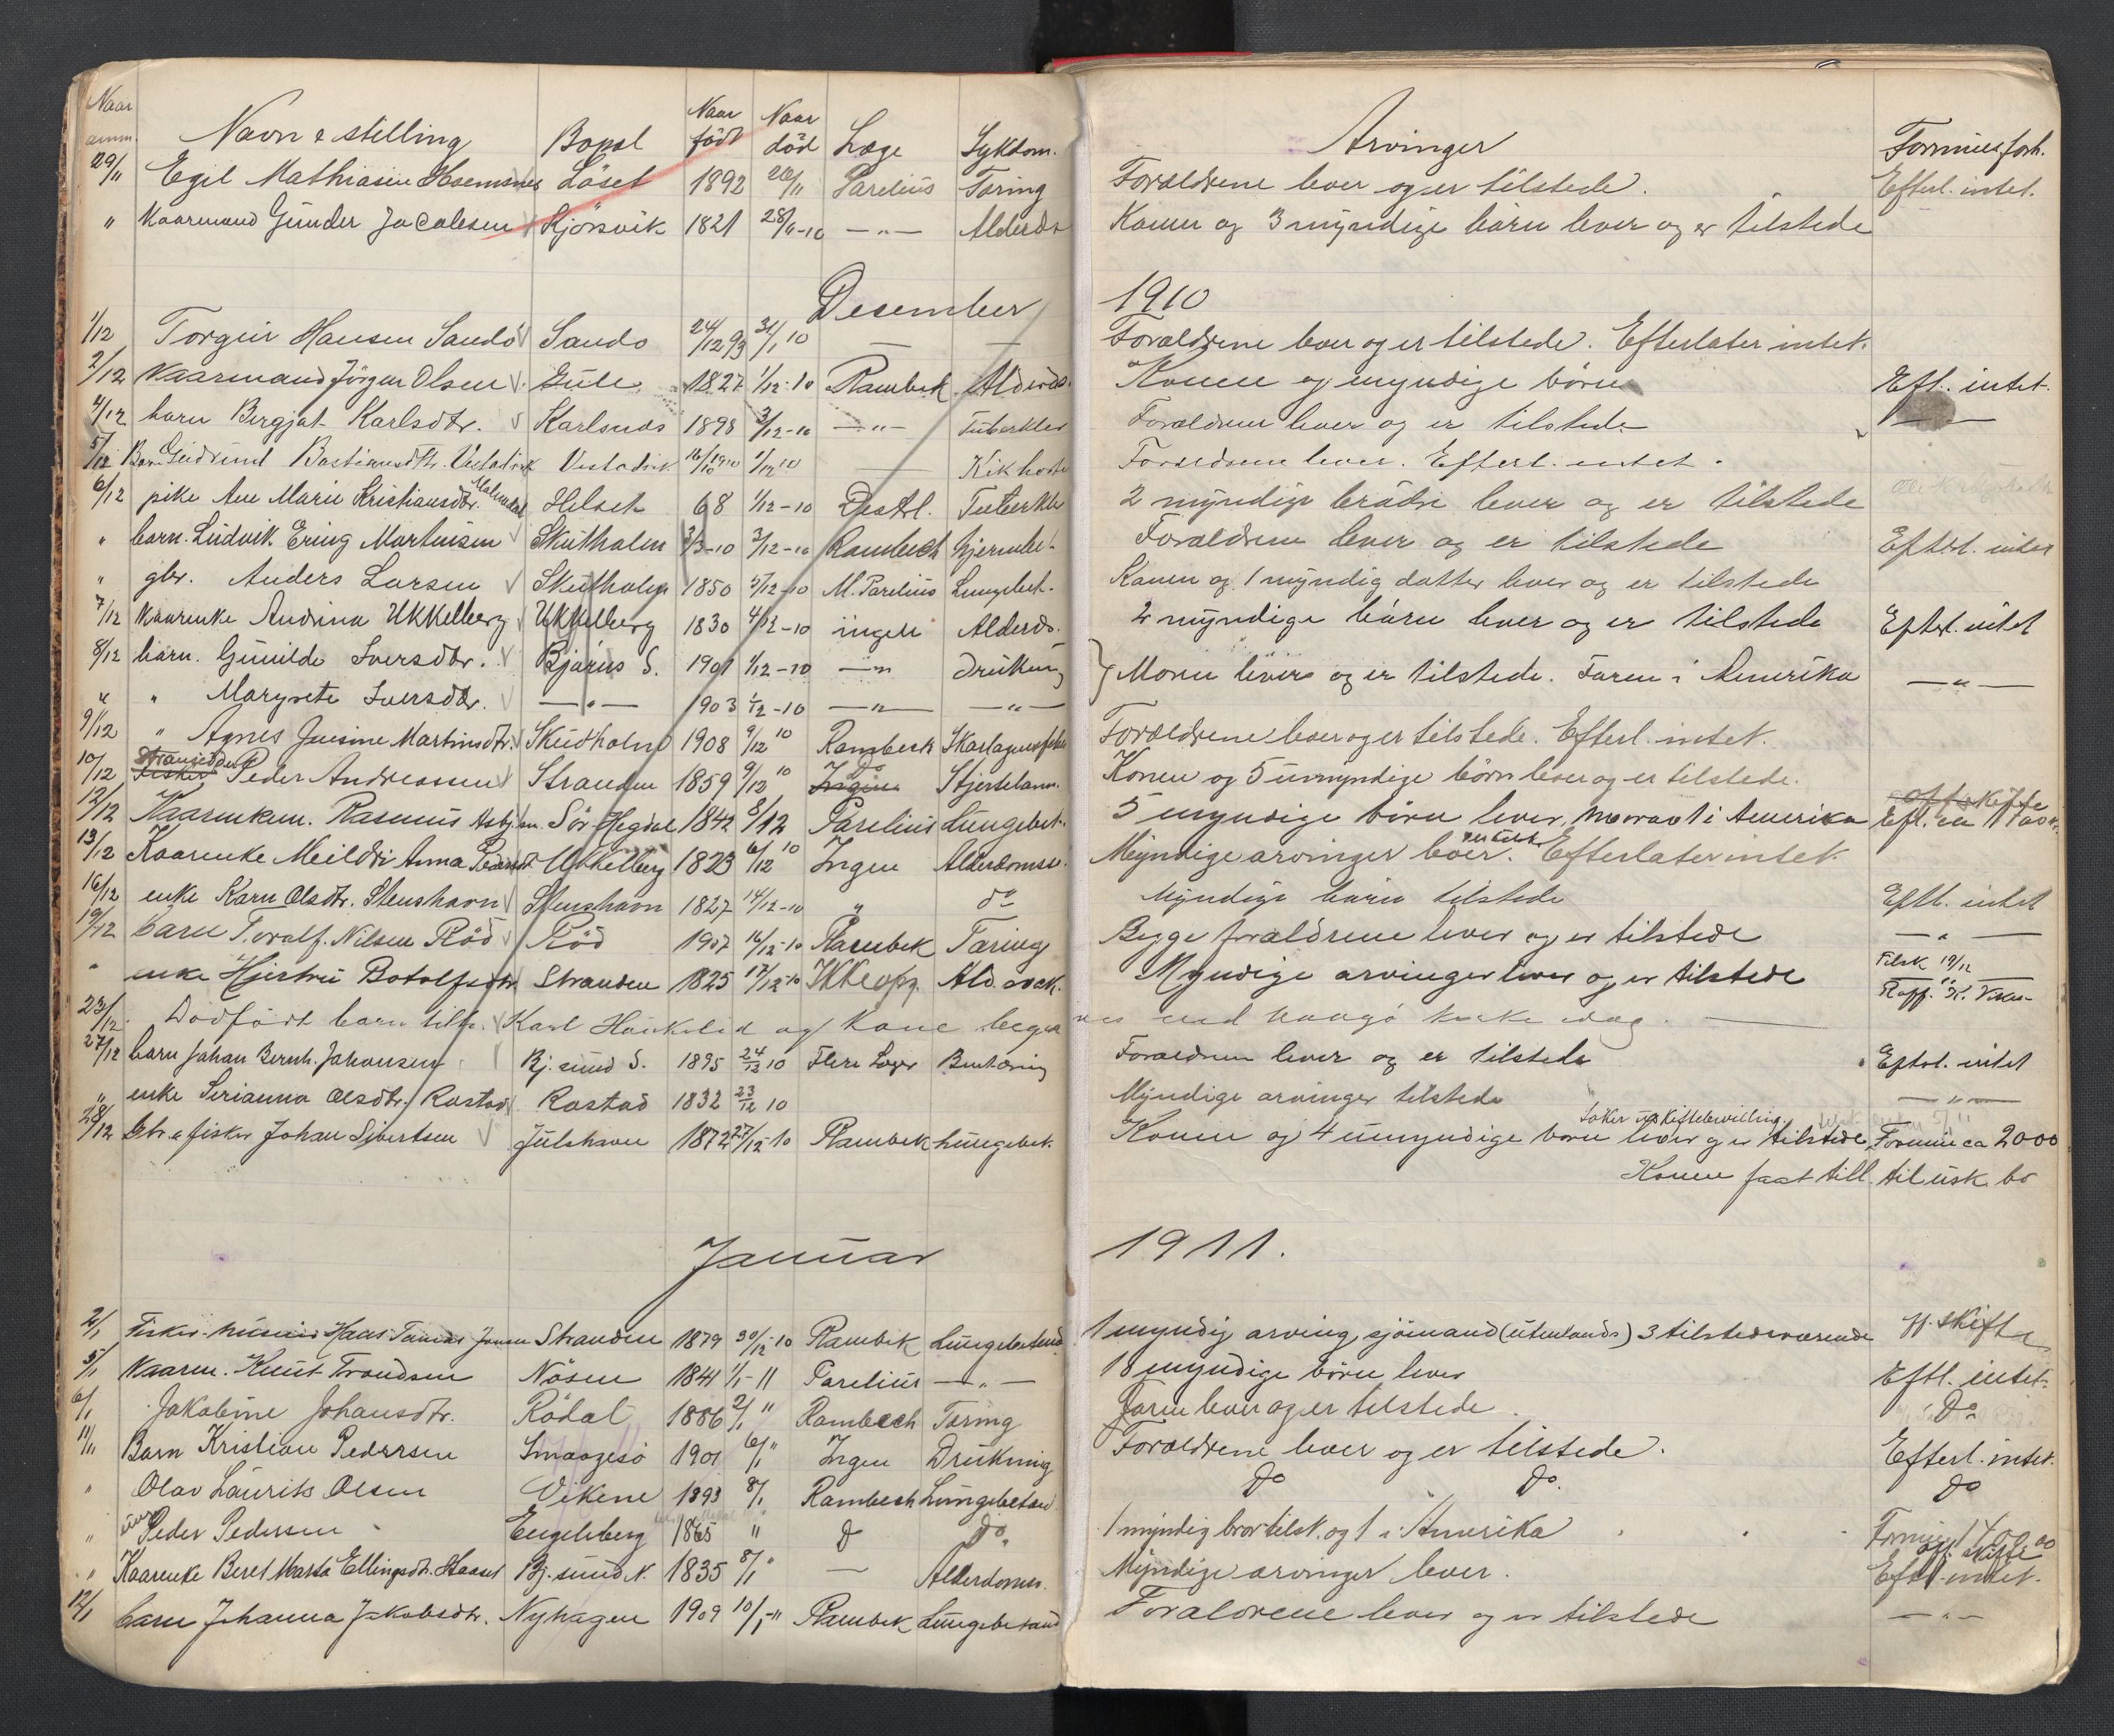 Naar anm. Navn & stilling Bopæl Naar født Naar død Læge Sykdom. Arvinger Formuesforh.
29/11 Egil Mathiasen Løset 1892 20/11 Parelius Tæring Forældrene lever og er tilstede. Efterl. intet.
" Kaarmand Gunder Jacobsen Kjørsvik 1821 28/11-10 —"— Alderds Konen og 3 myndige børn lever og er tilstede
Desember 1910
1/12 Torgeir Hansen Sandø Sandø 24/12 93 31/1 10 — — Forældrene lever og er tilstede. Efterlater intet.
2/12 Kaarmand Jørgen Olsen Gule 1827 1/12-10 Rambek Alderds. Konen og myndige børn Eft. intet.
4/12 barn Bergjat Karlsdtr. Karlsnes 1898 3/12-10 —"— Tuberkler Forældrene lever og er tilstede —"—
5/12 Barn Gudrund Bastiansdtr. Vestadvik Vestadvik 16/10 1910 1/12 10 — Kikhoste Forældrene lever. Efterl. intet.
6/12 pike Ane Marie Kristiansdtr. Malmedal Helset 68 1/12-10 Destrl. Tuberkler 2 myndige brødre lever og er tilstede
" barn. Ludvik Ering Martinsen Skutholm 3/3-10 3/12-10 Rambech hjernebet. Forældrene lever og er tilstede Efterl. intet
" gbr. Anders Larsen Skutholm 1850 5/12-10 M. Parelius Lungebet. Konen og 1 myndig datter lever og er tilstede
7/12 Kaarenke Andrina Ukkelberg Ukkelberg 1830 4/12-10 ingen Alderds. 2 myndige børn lever og er tilstede Efterl. intet
8/12 barn. Gunilde Iversdtr. Bjørnes S. 1901 1/12-10 —"— drukning } Moren lever og er tilstede. Faren i Amerika —"—
" " Margrete Iversdtr. —"— 1903 1/12-10 —"— —"—
9/12 " Agnes Jensine Martinsdtr. Skudholm 1908 9/12 10 Rambech Skarlagensfeber Forældrene lever og er tilstede. Efterl. intet.
10/12 Fisker Peder Andreassen Stranden 1859 9/12 10 Ingen do Hjertelam. Konen og 5 umyndige børn lever og er tilstede.
12/12 Kaarenkem. Rasmus Asbj.sn. Sør Hegdal 1842 8/12 Parelius Lungebet. 5 myndige børn lever, hvorav 1 i Amerika off skifte Eft. ca
13/12 Kaarenke Meildri Anna Pedersdt Ukkelberg 1823 6/12 10 Ingen Alderdomss. Myndige arvinger lever. Efterlater intet.
16/12 enke Karn Olsdtr. Stenshavn Stenshavn 1827 14/12-10 " do Myndige børn tilstede Eftl. intet
19/12 barn Toralf. Nilsen Rød Rød 1907 16/12-10 Rambek Tæring Begge forældrene lever og er tilstede —"—
" enke Botolfsdtr Stranden 1825 17/12-10 Ikke opg. Ald. svak. Myndige arvinger lever og er tilstede Tilsk 19/12
23/12. Dødfødt barn tilh. Karl Haukelid og kone begraves ved kirke idag. —
27/12 barn Johan Bernh. Johansen Bj. sund S. 1895 24/12 10 Flere Læger Bentæring Forældrene lever og er tilstede Eftol. intet
" enke Serianna Olsdtr. Rastad Rastad 1832 23/12 10 Myndige arvinger tilstede —"—
28/12 Gbr & fisker Johan Sivertsen Julshavn 1872 27/12-10 Rambek lungebet. Konen og 4 umyndige børn lever og er tilstede Formue ca 2000
søker uskiftebevilling
Konen faat till. til usk. bo
Januar 1911.
2/1 Fisker Hans Tomas Jonsen Stranden 1879 30/12-10 Rambek Lungebetend 1 myndig arving, sjømand (utenlands) 3 tilstedeværende off. skifte
5/1 Kaarm. Knut Trondsen Nøsen 1841 1/1-11 Parelius —"— 10 myndige børn lever Eftl. intet
6/1 Jakobine Johansdtr. Rødal 1886 2/1 " Rambech Tæring Faren lever og er tilstede. Do
11/1 Barn Kristian Pedersen Smaagesø 1901 6/1 " Ingen Drukning Forældrene lever og er tilstede. Efterl. intet.
" Olav Laurits Olsen Vikene 1893 8/1 Rambech Lungebetæn. Do Do. Do
" Peder Pedersen Engelsberg 1865 " D Do. 1 myndig bror tilst. og 1 i Amerika Formue 1400.00
off. skifte
" Kaarenke Beret Marta Ellingsdtr. Haaset Bj. sund N. 1835 8/1 " — Alderdoms. Myndige arvinger lever. Eftl. intet.
12/1 barn Johanna Jakobsdtr. Nyhagen 1909 10/1-11 Rambek Lungebetænd Forældrene lever og er tilstede —"—